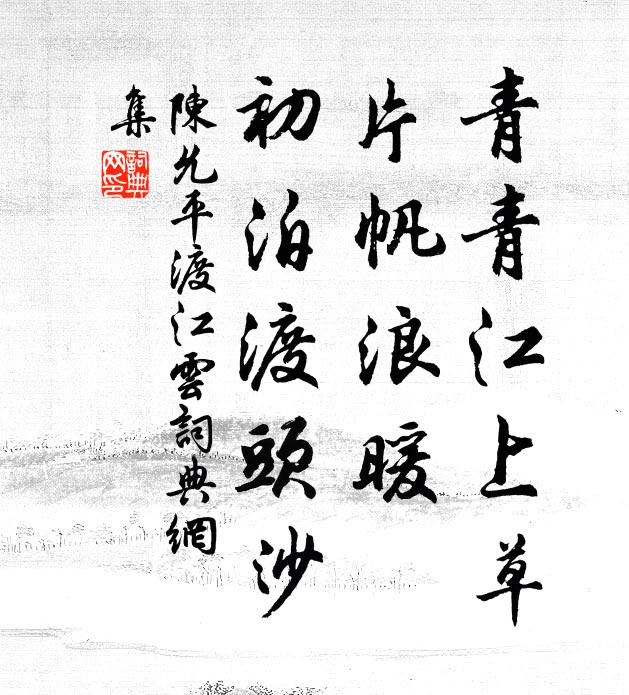 青青江上草
片帆浪暖
初泊渡頭沙
陳允平渡江雲詞典網
集
詞典
网印